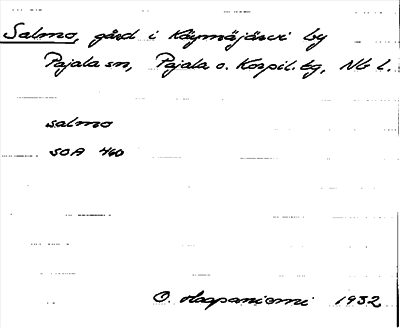 Salmo, gård i Käymäjärvi by
Pajala sn, Pajala o. Korpil. tg, Nb l.
salmo
SOA 460
O. Haapaniemi 1932